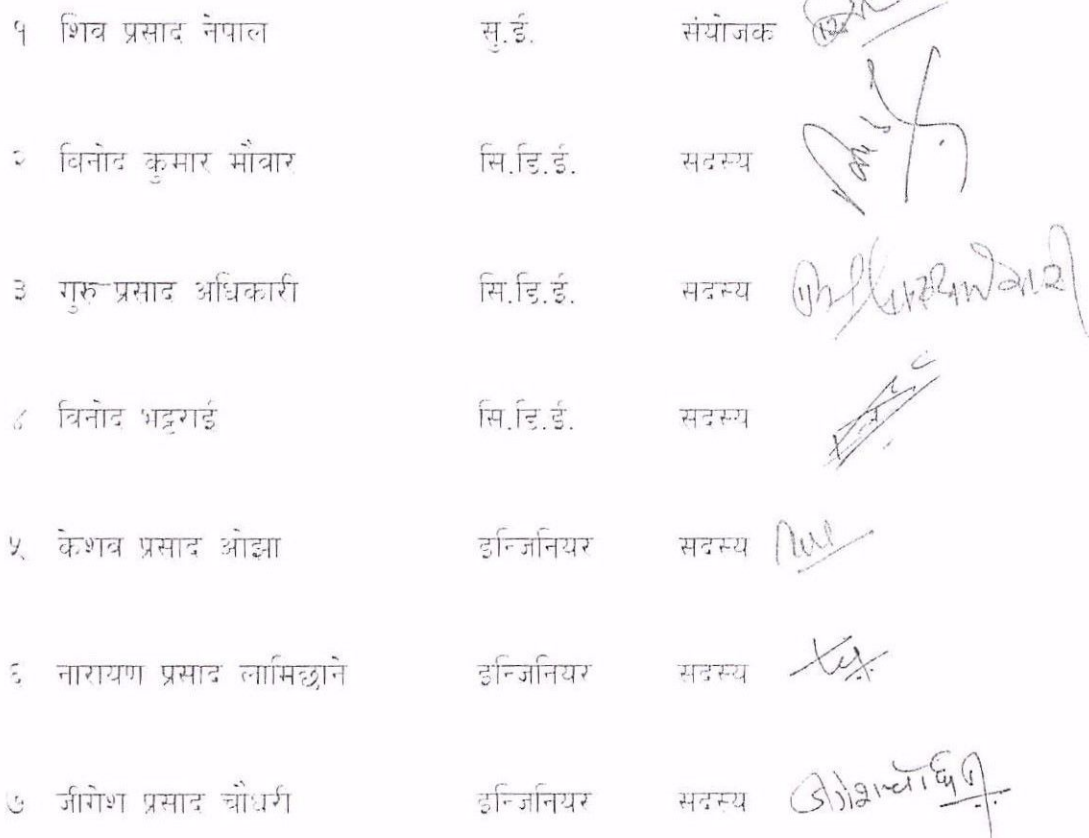 १ शिव प्रसाद नेपाल सु.ई. संयोजक
२ विनोद कुमार मौवार सि.डि.ई. सदस्य
३ गुरु प्रसाद अधिकारी सि.डि.ई. सदस्य
४ विनोद भट्टराई सि.डि.ई. सदस्य
५ केशव प्रसाद ओझा इन्जिनियर सदस्य
६ नारायण प्रसाद लामिछाने इन्जिनियर सदस्य
७ जीगेश प्रसाद चौधरी इन्जिनियर सदस्य